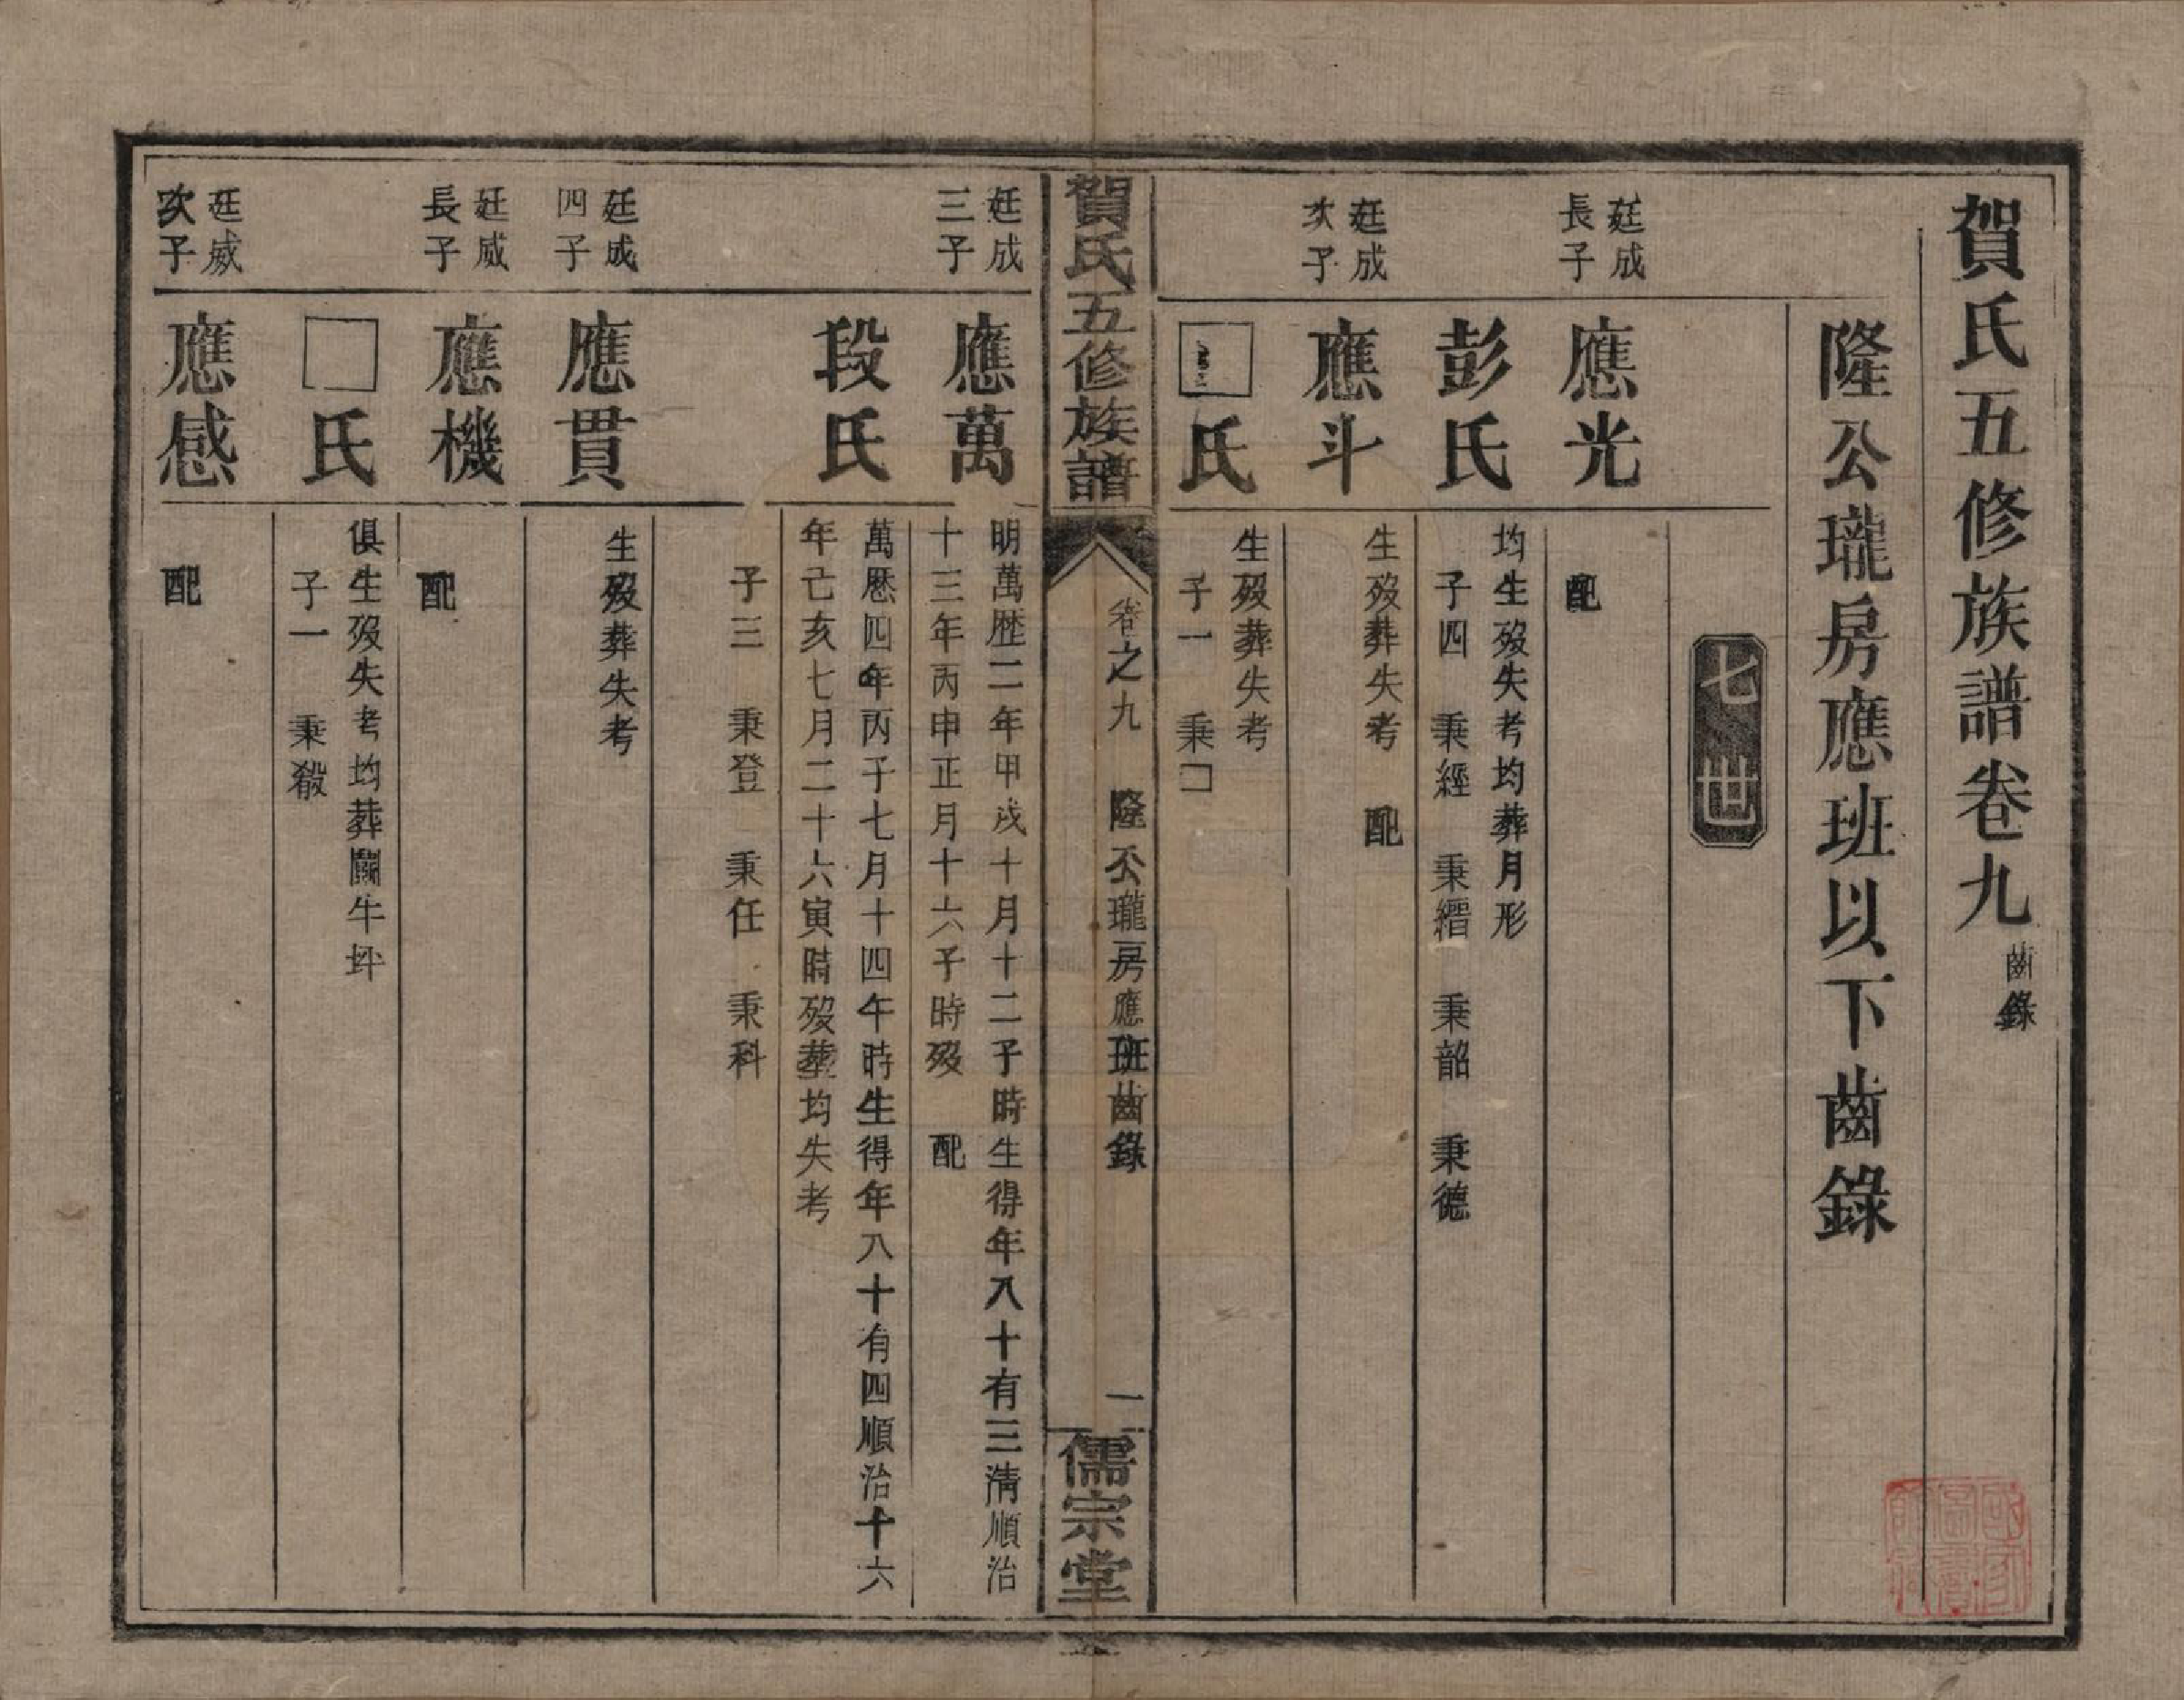 賀氏五修族譜卷九齒錄
隆公瓏房應班以下齒錄
七世
廷成
長子
應光
配
彭氏
均生歿失考均葬月形
子四　秉經　秉縉　秉韶　秉德
廷成
次子
應斗
生歿葬失考　配
□氏
生歿葬失考
子一　秉□
賀氏五修族譜
卷之九　隆公瓏房應班齒錄
一
儒宗堂
廷成
三子
應萬
明萬歷二年甲戌十月十二子時生得年八十有三清順治
十三年丙申正月十六子時歿　配
段氏
萬歷四年丙子七月十四午時生得年八十有四順治十六
年己亥七月二十六寅時歿葬均失考
子三　秉登　秉任　秉科
廷成
四子
應貫
生歿葬失考
廷威
長子
應機
配
□氏
俱生歿失考均葬鬭牛坪
子一　秉毅
廷威
次子
應感
配